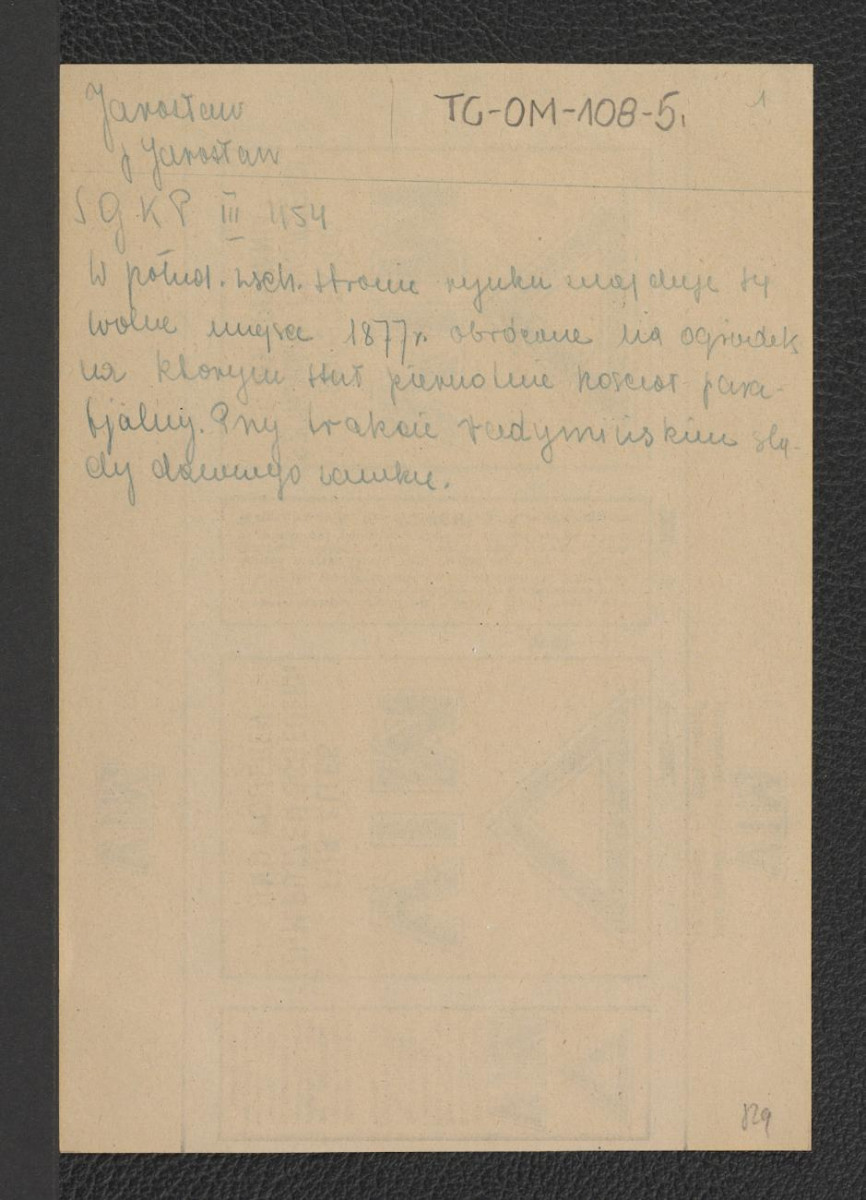 Jarosław TG-OM-108-5. 1
j Jarosław
S G K P III 454
W połud. wsch. stronie rynku znajduje się
wolne miejsce 1877 r. obrócone na ogródek
na którym stał pierwotnie kościoł para-
fjalny. Przy trakcie radymińskim śla-
dy dawnego zamku.
829